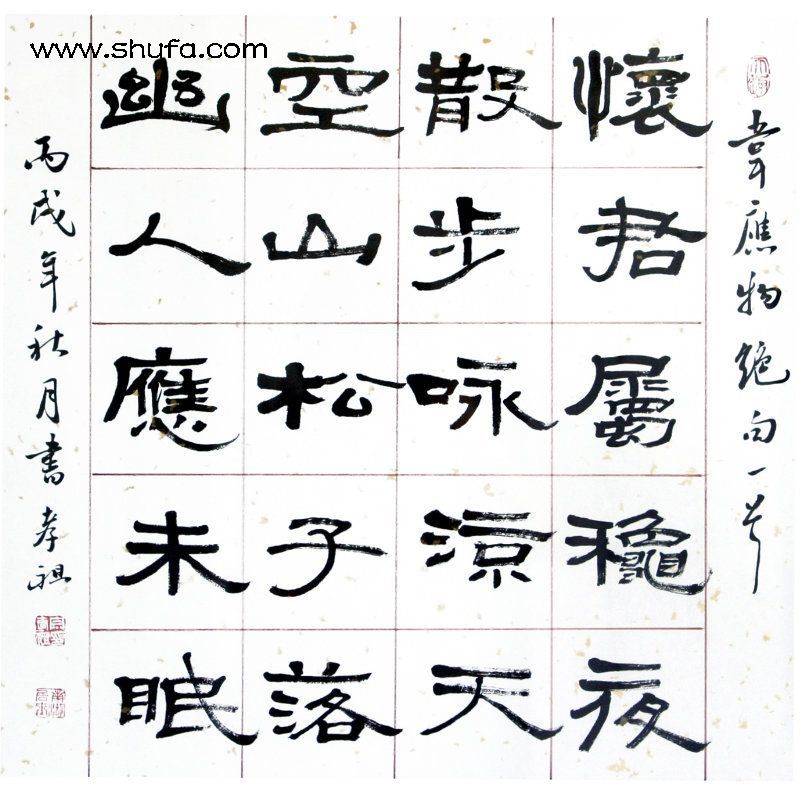 www.shufa.com
韋應物絕句一首
懷君屬穐夜
散步咏涼天
空山松子落
幽人應未眠
丙戌年秋月書孝祖